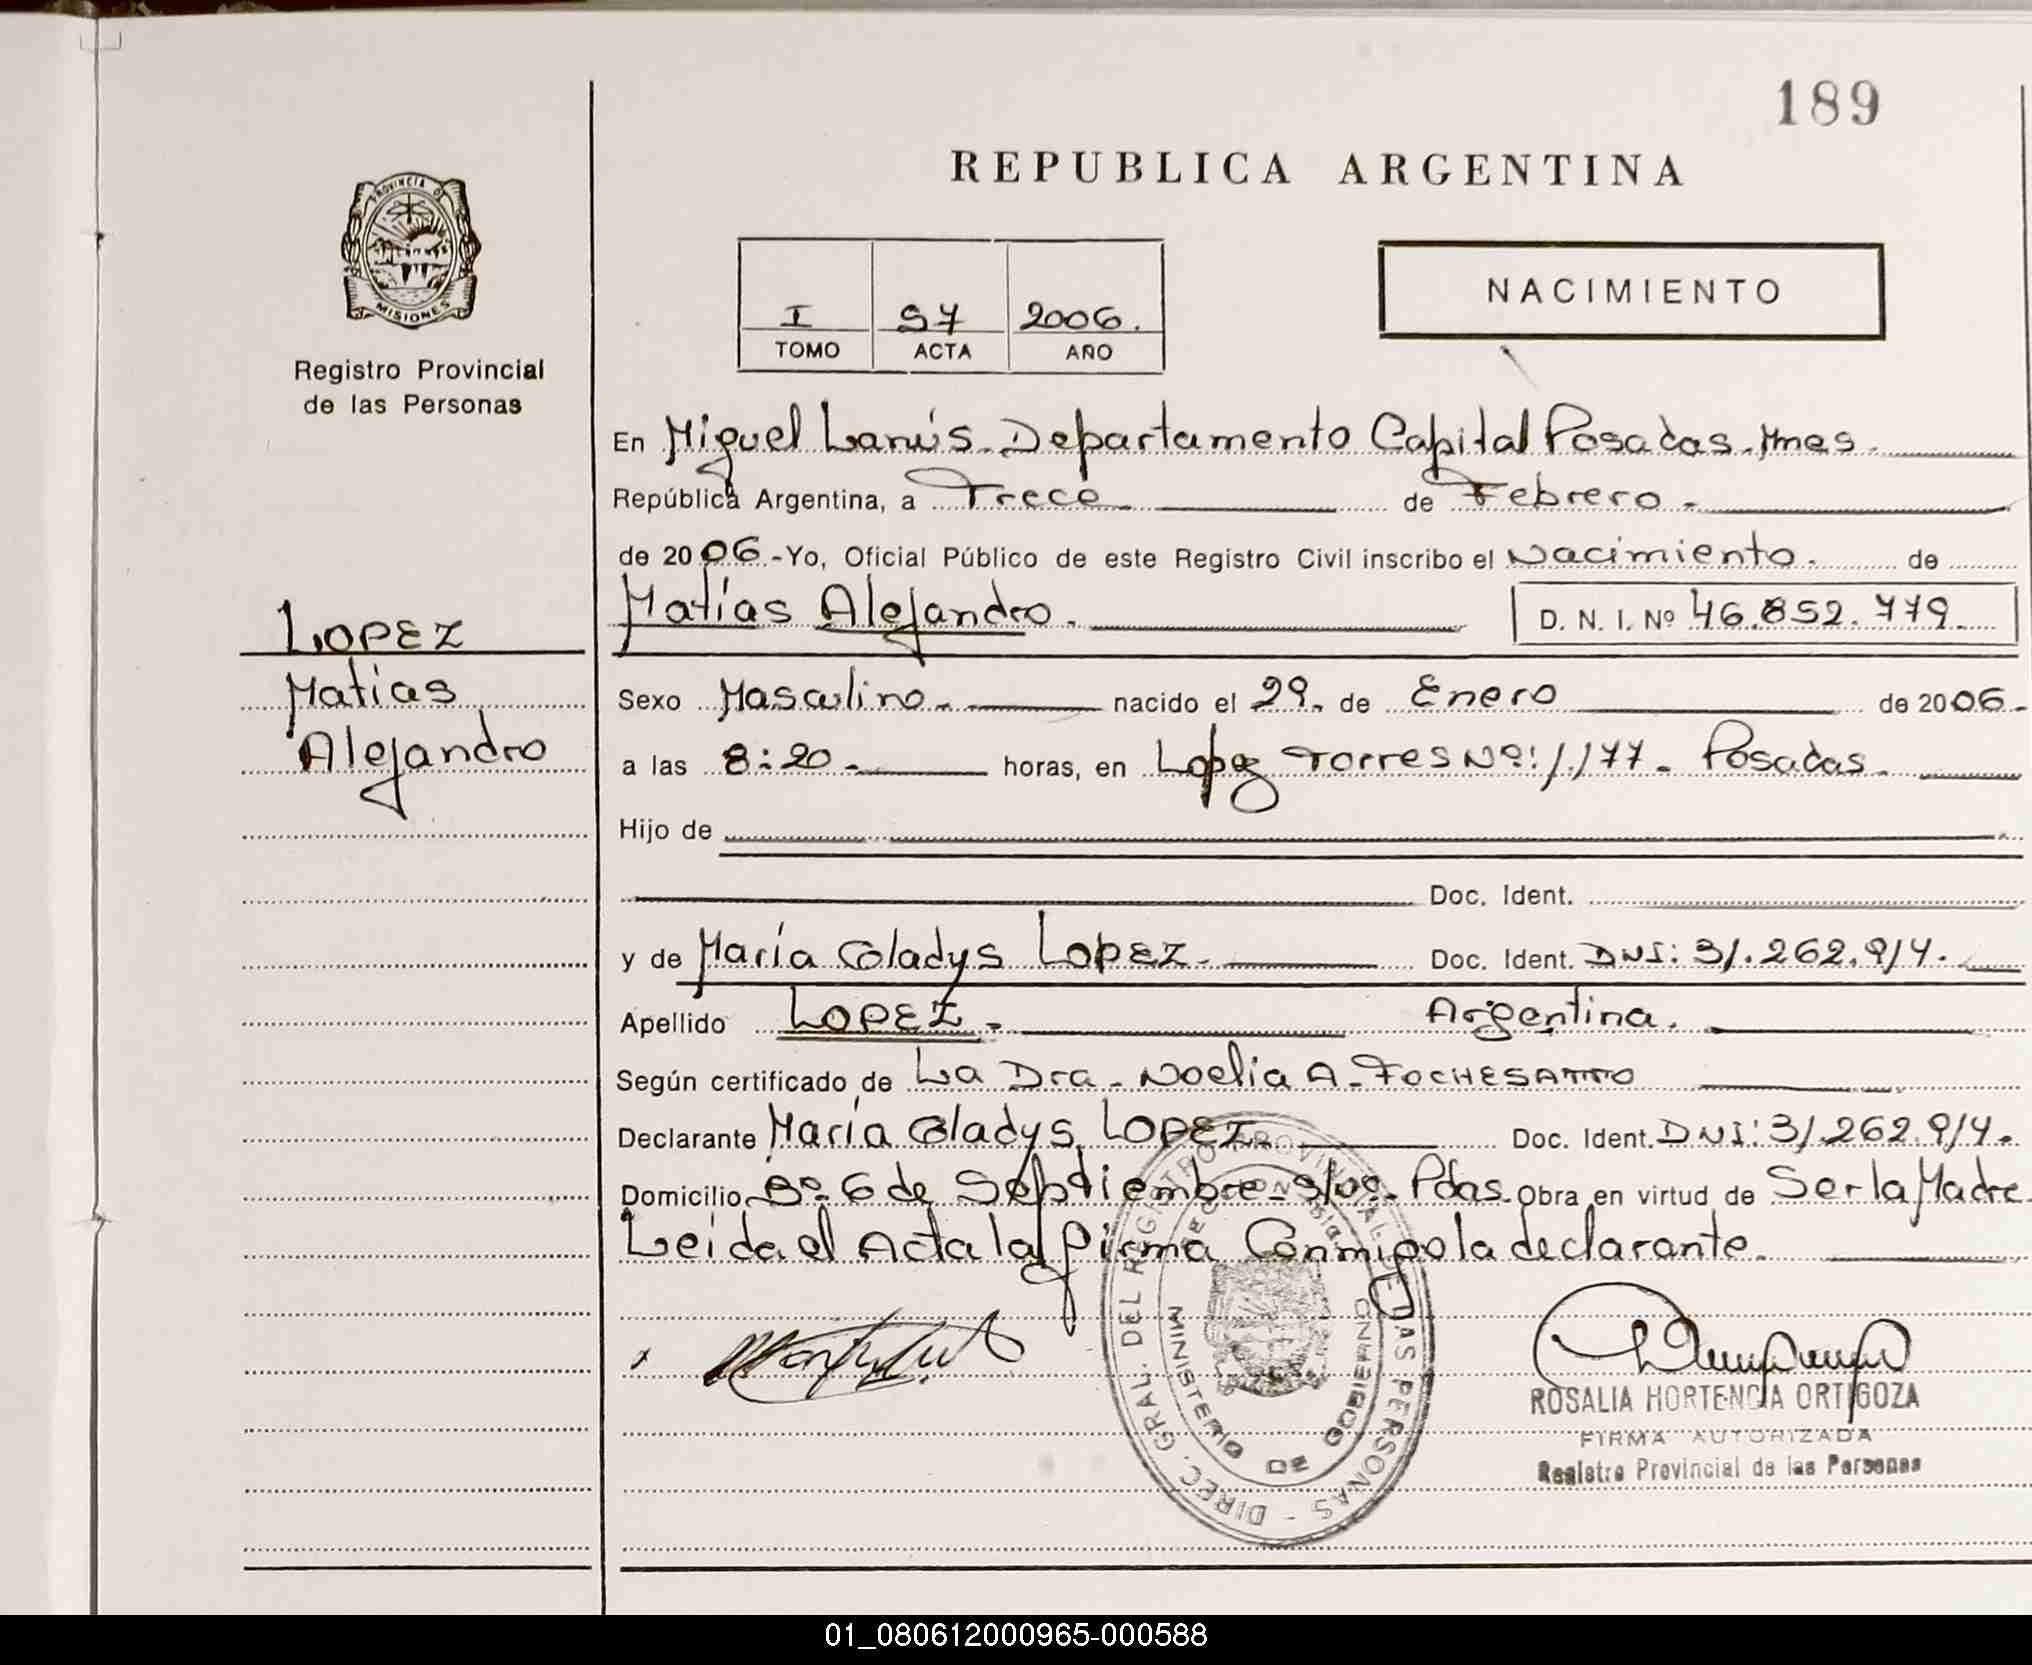 189
REPUBLICA ARGENTINA
PROVINCIA DE
MISIONES
Registro Provincial
de las Personas
I 97 2006.
TOMO ACTA AÑO
NACIMIENTO
En Miguel Lanús. Departamento Capital Posadas. Mnes.
República Argentina, a Trece de Febrero.
de 2006.-Yo, Oficial Público de este Registro Civil inscribo el Nacimiento. de
Matías Alejandro. D. N. I. Nº 46.852.779.
LOPEZ
Matías
Alejandro
Sexo Masculino. nacido el 29. de Enero de 2006.
a las 8:20. horas, en Lopez Torres Nº: 1.177. Posadas.
Hijo de
Doc. Ident.
y de María Gladys LOPEZ. Doc. Ident. DNI: 31.262.914.
Apellido LOPEZ. Argentina.
Según certificado de La Dra. Noelia A. FOCHESATTO
Declarante María Gladys LOPEZ. Doc. Ident. DNI: 31.262.914.
Domicilio Bº. 6 de Septiembre. S/Nº. Pdas. Obra en virtud de Ser la Madre
Leida el Acta la firma Conmigo la declarante.
DIREC. GRAL. DEL REGISTRO PROVINCIAL DE LAS PERSONAS -
MINISTERIO DE GOBIERNO
ROSALIA HORTENCIA ORTIGOZA
FIRMA AUTORIZADA
Registro Provincial de las Personas
01_080612000965-000588